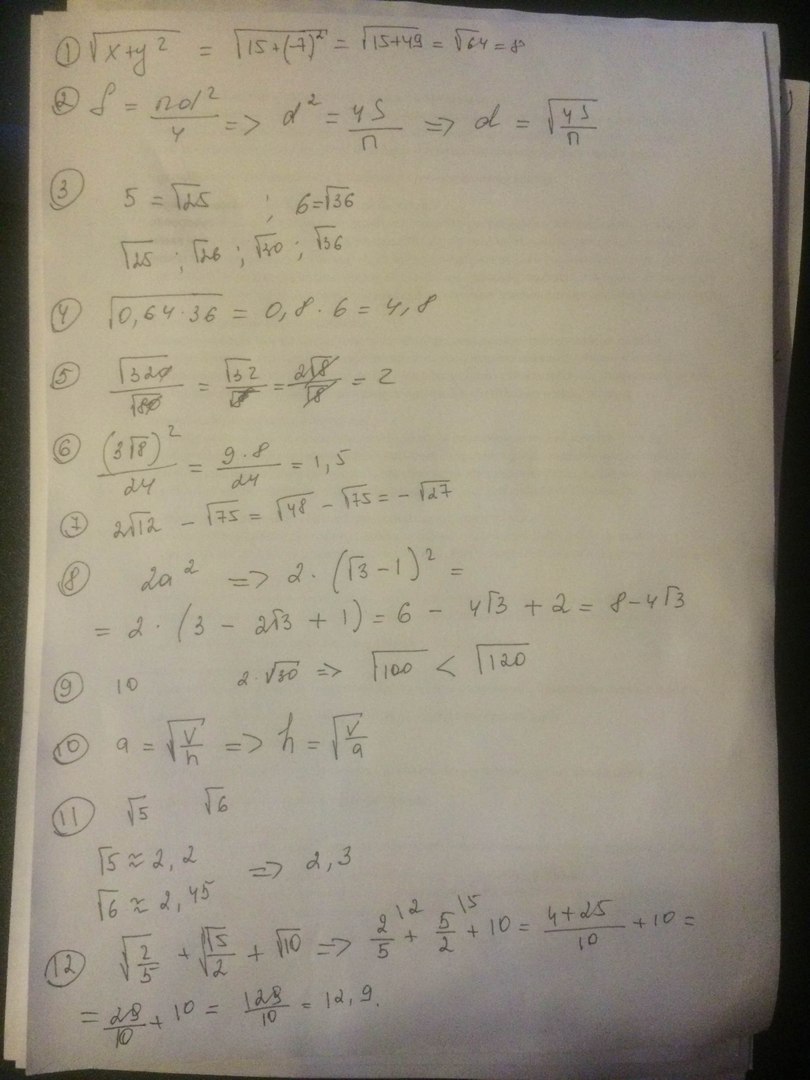 ① √(x+y²) = √(15+(-7)²) = √(15+49) = √64 = 8
② S = πd²/4 => d² = 4S/π => d = √(4S/π)
③ 5 = √25 ; 6=√36
√25 ; √26 ; √30 ; √36
④ √(0,64·36) = 0,8 · 6 = 4,8
⑤ √320/√80 = √32/√8 = 2√8/√8 = 2
⑥ (3√8)²/24 = 9·8/24 = 1,5
⑦ 2√12 - √75 = √48 - √75 = -√27
⑧ 2a² => 2 · (√3-1)² =
= 2 · (3 - 2√3 + 1) = 6 - 4√3 + 2 = 8-4√3
⑨ 10 2·√30 => √100 < √120
⑩ a = √(V/h) => h = √(V/a)
⑪ √5 √6
√5 ≈ 2,2 => 2,3
√6 ≈ 2,45
⑫ √(2/5) + √(√5/2) + √10 => 2/5 \2 + 5/2 \5 + 10 = (4+25)/10 + 10 =
= 29/10 + 10 = 129/10 = 12,9.